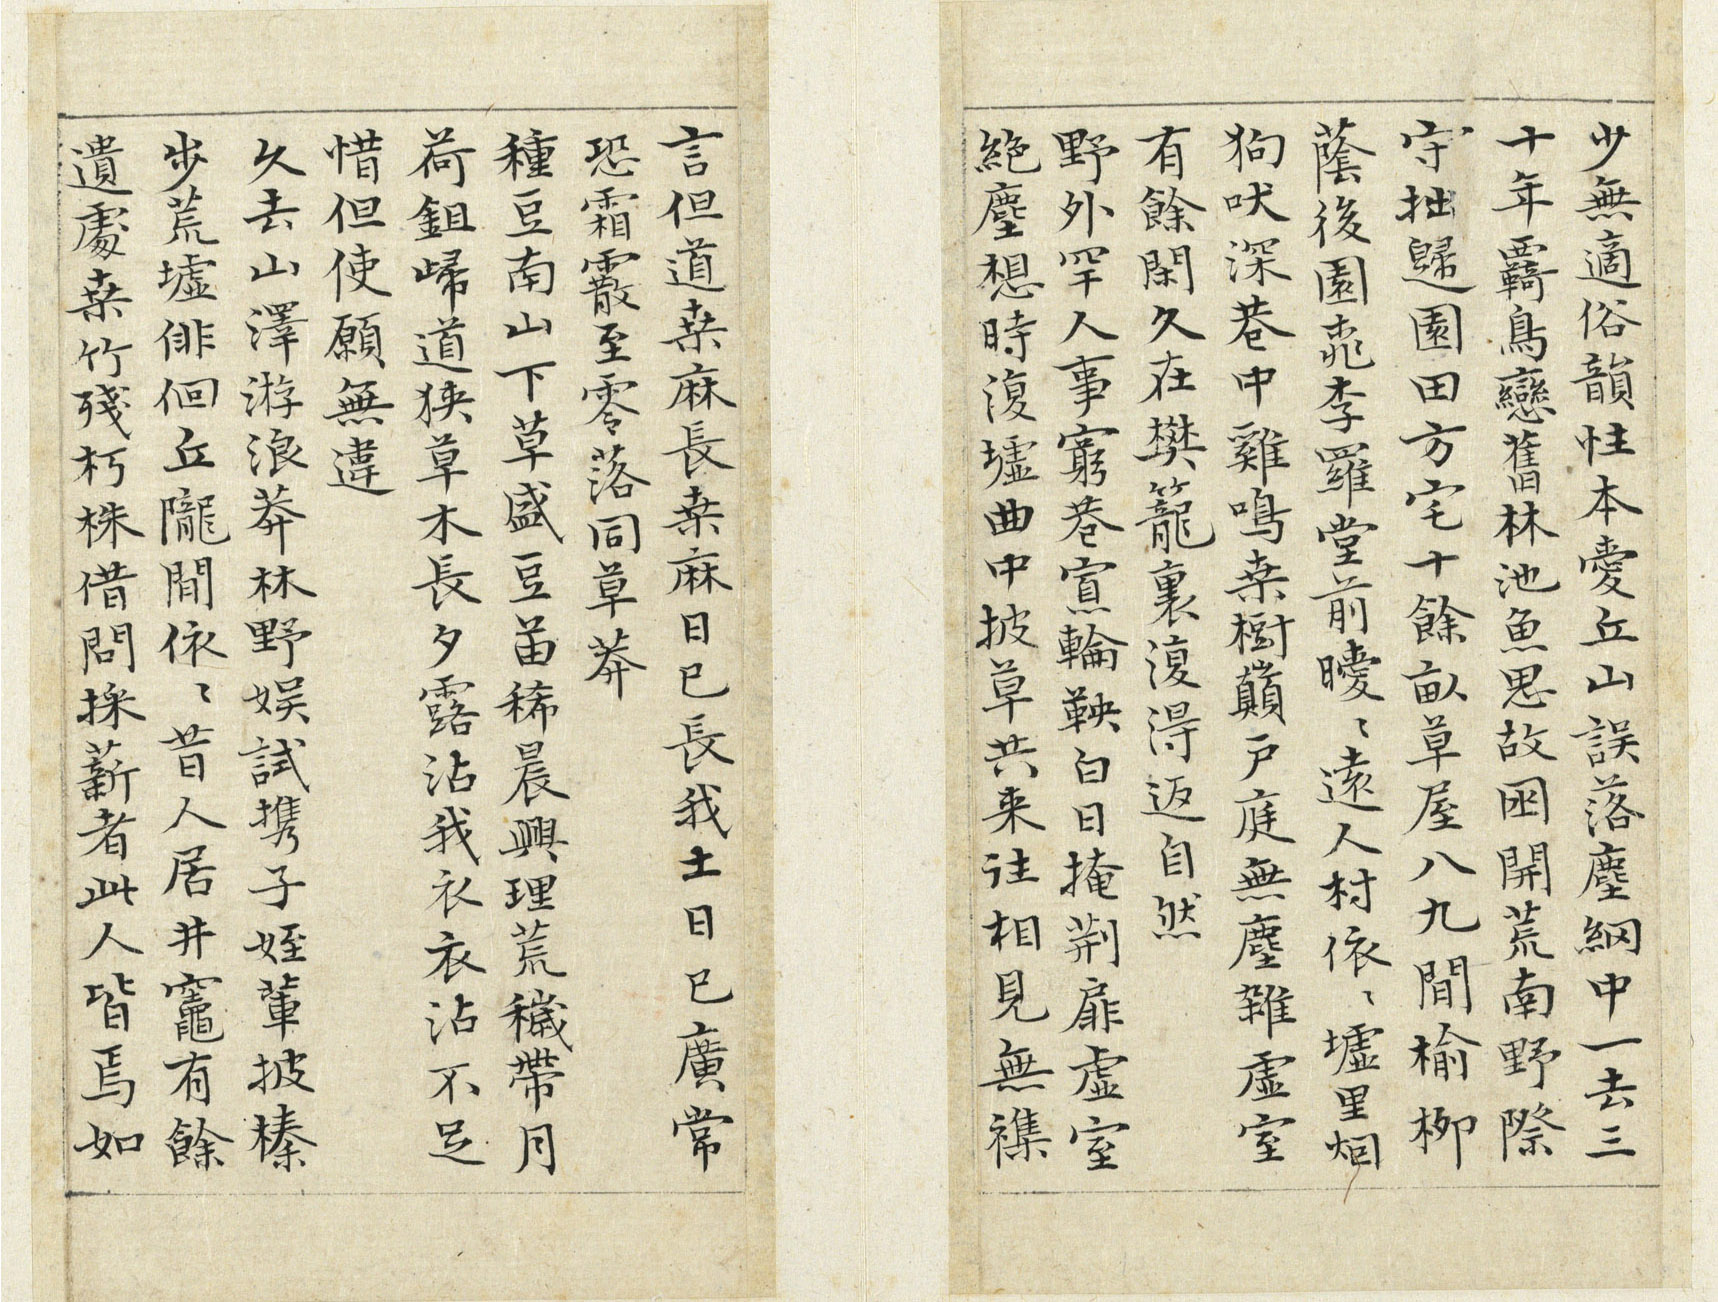 少無適俗韻性本愛丘山誤落塵網中一去三
十年覊鳥戀舊林池魚思故困開荒南野際
守拙歸園田方宅十餘畝草屋八九間榆柳
蔭後園桃李羅堂前曖〻遠人村依〻墟里烟
狗吠深巷中雞鳴桒樹巔戶庭無塵雜虛室
有餘閑久在樊籠裏復得返自然
野外罕人事窮巷寡輪鞅白日掩荆扉虛室
絕塵想時復墟曲中披草共来往相見無襍
言但道桒麻長桒麻日已長我土日已廣常
恐霜霰至零落同草莽
種豆南山下草盛豆苗稀晨興理荒穢帶月
荷鉏歸道狹草木長夕露沾我衣衣沾不足
惜但使願無違
久去山澤游浪莽林野娱試携子姪輩披榛
步荒墟俳佪丘隴間依〻昔人居井竈有餘
遺處桒竹殘朽株借問採薪者此人皆焉如